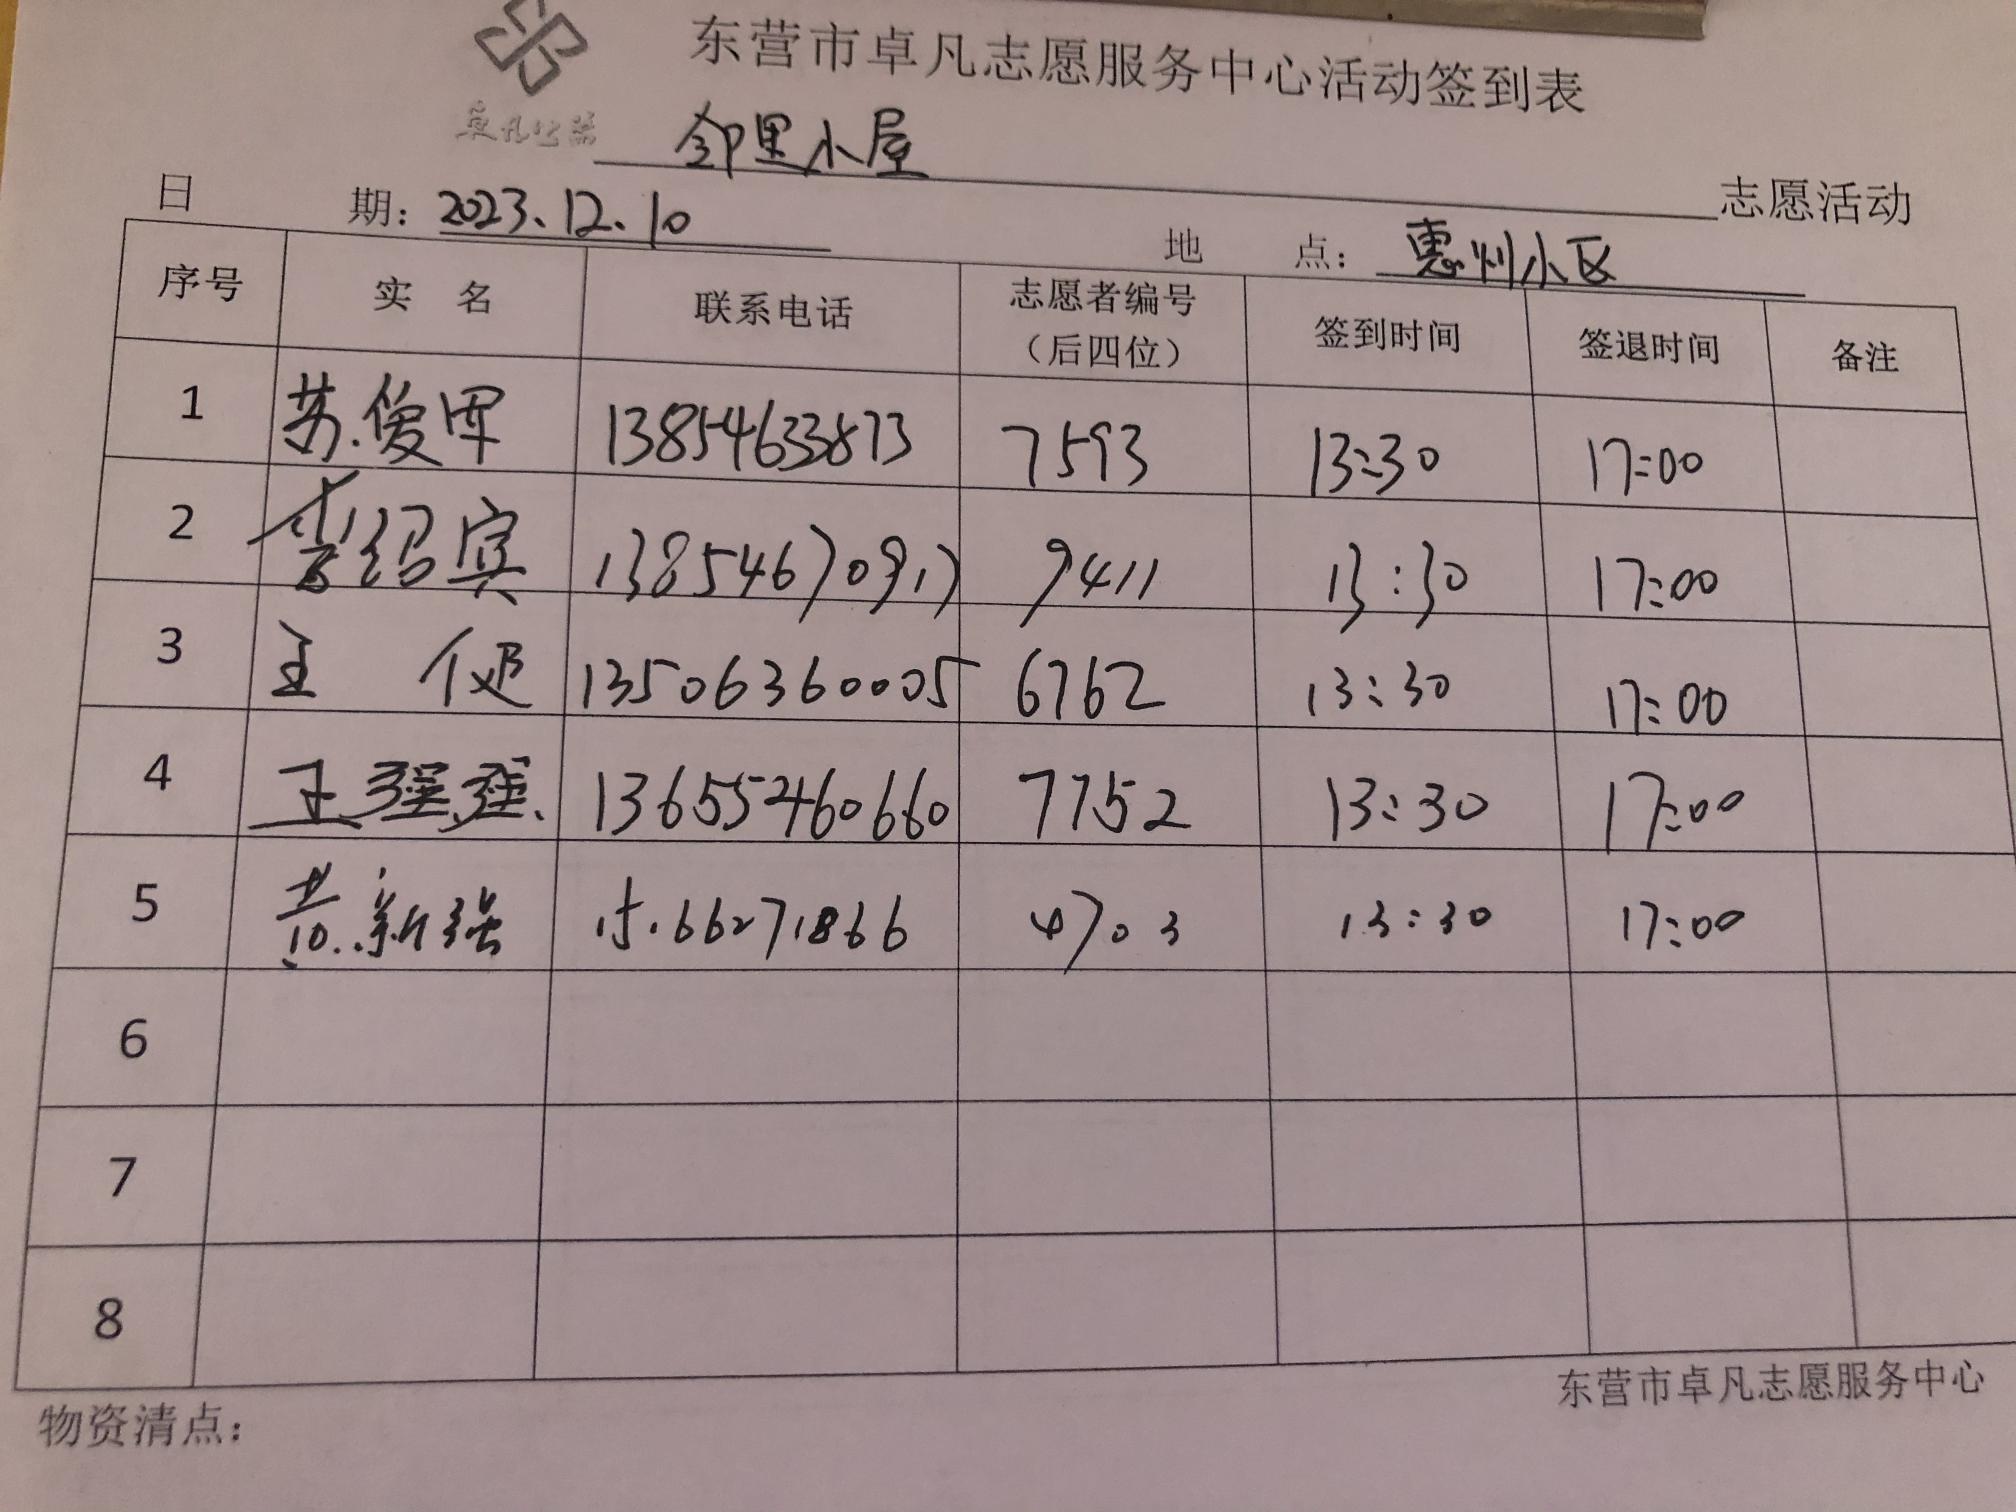 东营市卓凡志愿服务中心活动签到表
卓凡公益
邻里小屋 志愿活动
日 期：2023.12.10 地 点：惠州小区
序号 实 名 联系电话 志愿者编号（后四位） 签到时间 签退时间 备注
1 苏俊军 13854633873 7593 13:30 17:00
2 李绍宾 13854670917 9411 13:30 17:00
3 王 13506360005 6762 13:30 17:00
4 王强强 13655460660 7752 13:30 17:00
5 黄新强 15.66271866 4703 13:30 17:00
6
7
8
物资清点： 东营市卓凡志愿服务中心